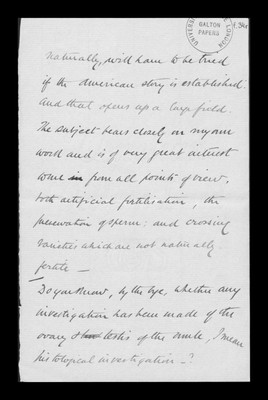 UNIVERSITY
COLLEGE LONDON
GALTON
PAPERS
naturally, will have to be tried
if the American story is established.
And that opens up a large field.
The subject bears closely on my own
work and is of very great interest
to me from all points of view,
both artificial fertilisation, the
preservation of sperm: and crossing
varieties which are not naturally
fertile —
Do you know, by the bye, whether any
investigation has been made of the
ovary & testis of the mule, I mean
histological investigation —?